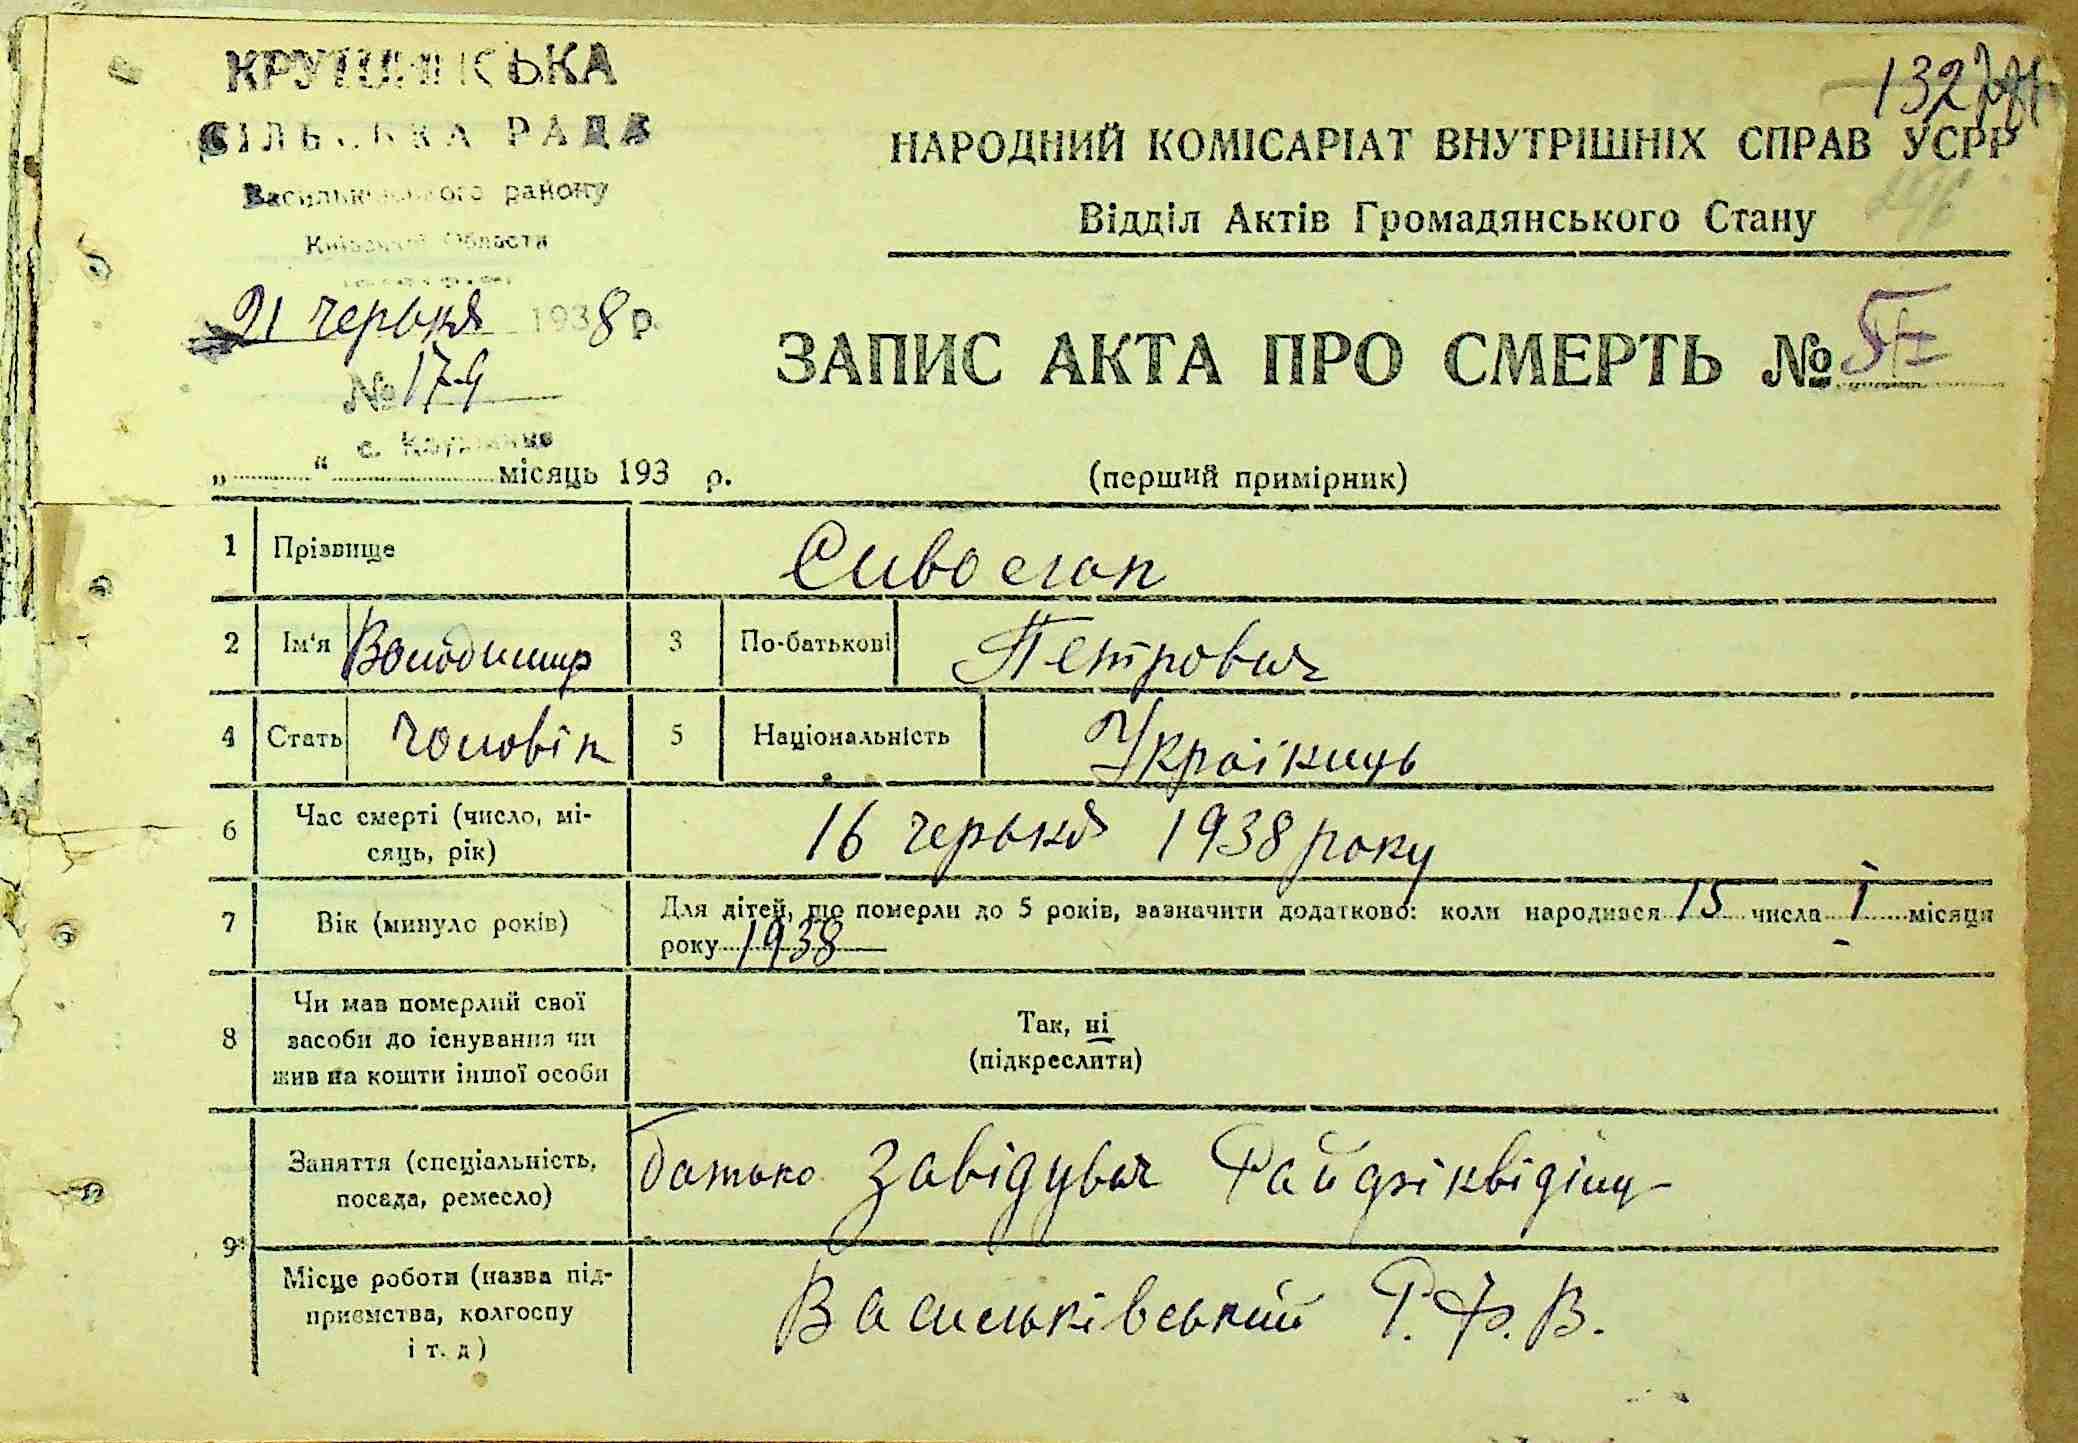 СІЛЬСЬКА РАДА
Васильківського району
Київської Области
21 червня 1938 р.
№ 179
„ “ місяць 193 р.
132
НАРОДНИЙ КОМІСАРІАТ ВНУТРІШНІХ СПРАВ УСРР
Відділ Актів Громадянського Стану
ЗАПИС АКТА ПРО СМЕРТЬ №
(перший примірник)
1 Прізвище Сивоглап
2 Ім'я Володимир 3 По-батькові Петрович
4 Стать чоловік 5 Національність Українець
6 Час смерті (число, мі-
сяць, рік) 16 червня 1938 року
7 Вік (минуло років) Для дітей, що померли до 5 років, зазначити додатково: коли народився 15 числа I місяця
року 1938
8 Чи мав померлий свої
засоби до існування чи
жив на кошти іншої особи
Так, ні
(підкреслити)
9 Заняття (спеціальність,
посада, ремесло) батько Завідувач
Місце роботи (назва під-
приємства, колгоспу
і т. д) Васильківський Р.Ф.В.